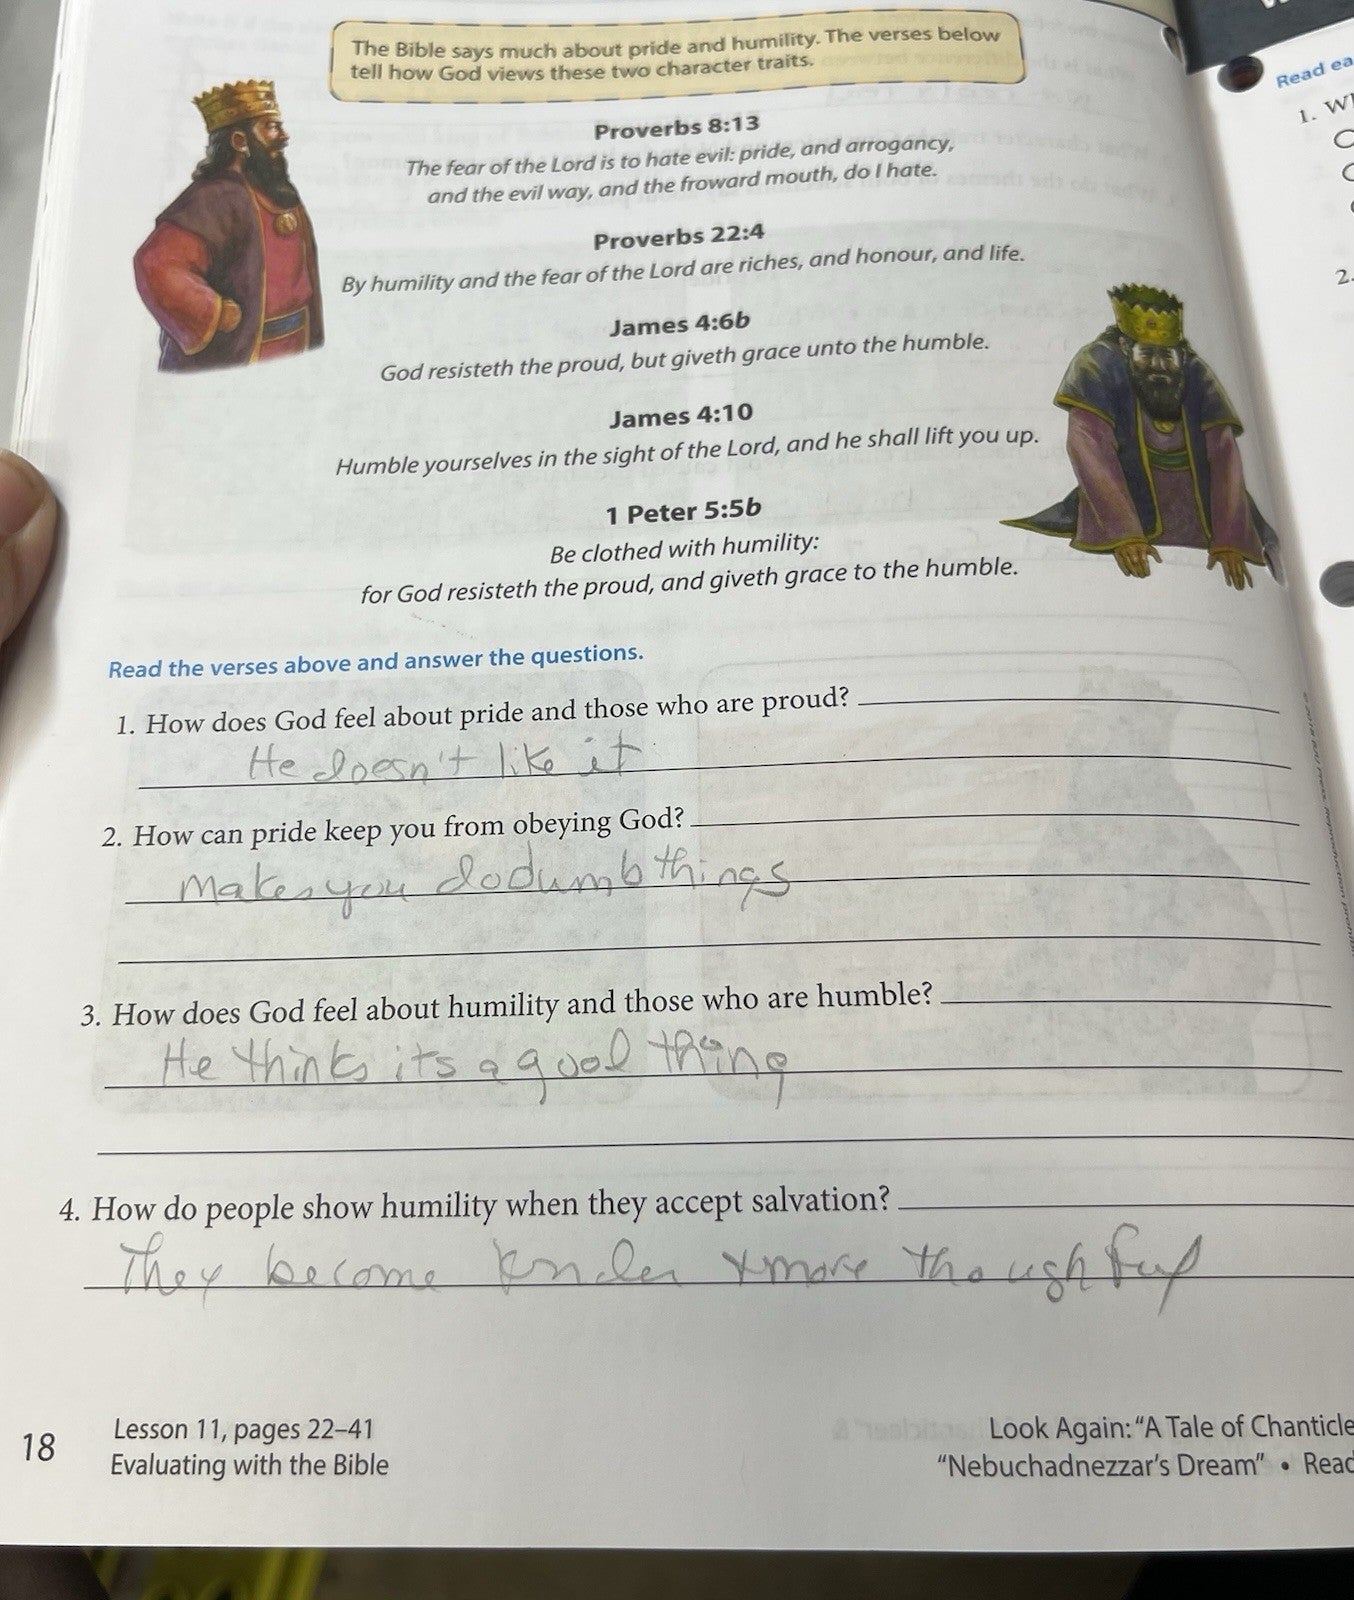 The Bible says much about pride and humility. The verses below
tell how God views these two character traits.
Proverbs 8:13
The fear of the Lord is to hate evil: pride, and arrogancy,
and the evil way, and the froward mouth, do I hate.
Proverbs 22:4
By humility and the fear of the Lord are riches, and honour, and life.
James 4:6b
God resisteth the proud, but giveth grace unto the humble.
James 4:10
Humble yourselves in the sight of the Lord, and he shall lift you up.
1 Peter 5:5b
Be clothed with humility:
for God resisteth the proud, and giveth grace to the humble.
Read the verses above and answer the questions.
1. How does God feel about pride and those who are proud?
He doesn't like it
2. How can pride keep you from obeying God?
makes you do dumb things
3. How does God feel about humility and those who are humble?
He thinks its a good thing
4. How do people show humility when they accept salvation?
They become kinder + more thoughtful
18
Lesson 11, pages 22–41
Evaluating with the Bible
Look Again: "A Tale of Chanticle
"Nebuchadnezzar's Dream" • Read
Read ea
1. Wh
2.